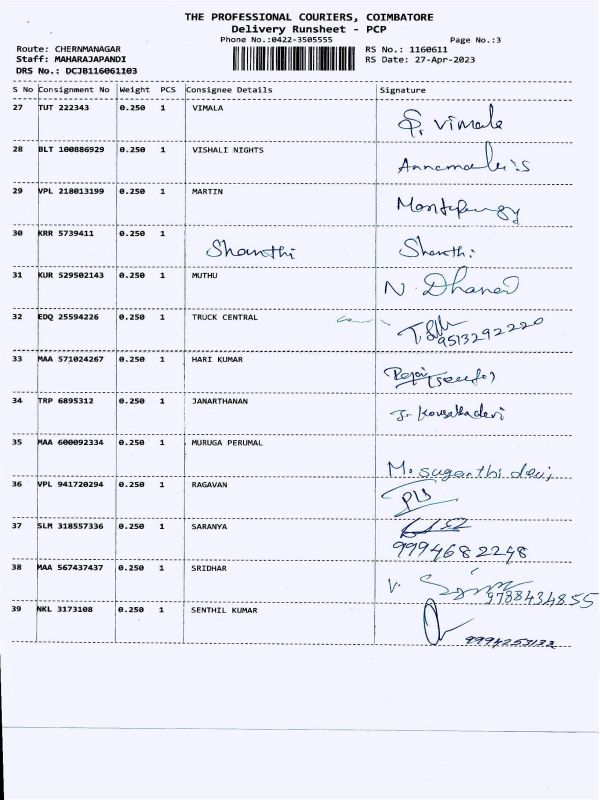 THE PROFESSIONAL COURIERS, COIMBATORE
Delivery Runsheet - PCP
Phone No.:0422-3505555 Page No.:3
Route: CHERNMANAGAR RS No.: 1160611
Staff: MAHARAJAPANDI RS Date: 27-Apr-2023
DRS No.: DCJB116061103
S No Consignment No Weight PCS Consignee Details Signature
27 TUT 222343 0.250 1 VIMALA P. Vimala
28 BLT 100886929 0.250 1 VISHALI NIGHTS
29 VPL 218013199 0.250 1 MARTIN
30 KRR 5739411 0.250 1 Shanthi Shanthi
31 KUR 529502143 0.250 1 MUTHU N. Dhanad
32 EDQ 25594226 0.250 1 TRUCK CENTRAL 9513292220
33 MAA 571024267 0.250 1 HARI KUMAR
34 TRP 6895312 0.250 1 JANARTHANAN J. Kousalyadevi
35 MAA 600092334 0.250 1 MURUGA PERUMAL M. suganthi devi
36 VPL 941720294 0.250 1 RAGAVAN
37 SLM 318557336 0.250 1 SARANYA 9994682248
38 MAA 567437437 0.250 1 SRIDHAR V. 9788434855
39 NKL 3173108 0.250 1 SENTHIL KUMAR 9994253132